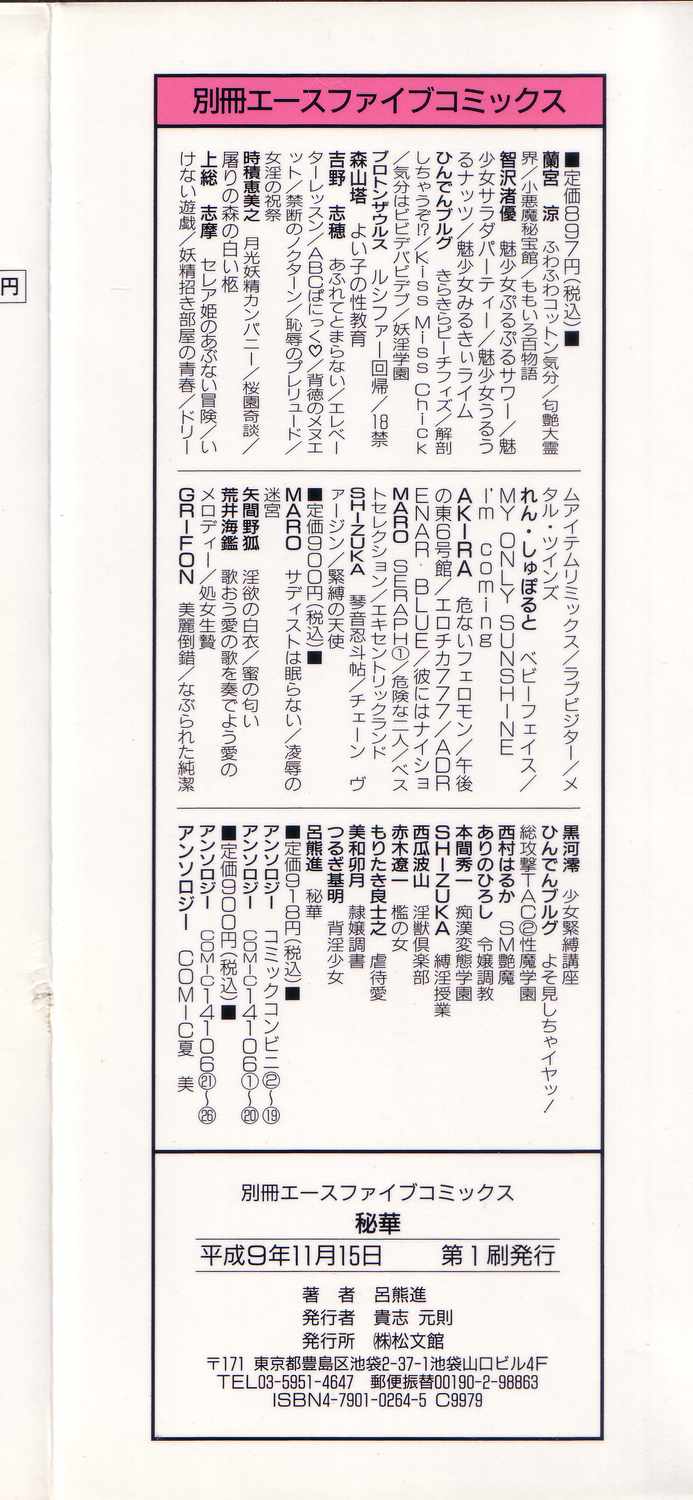 円
別冊エースファイブコミックス
■定価897円(税込)■
蘭宮 涼 ふわふわコットン気分/匂艶大霊
界/小悪魔秘宝館/ももいろ百物語
智沢渚優 魅少女ぷるぷるサワー/魅
少女サラダパーティー/魅少女うるう
るナッツ/魅少女みるきぃライム
ひんでんブルグ きらきらピーチフィズ/解剖
しちゃうぞ!?/Kiss Miss Chick
/気分はビビデバビデブ/妖淫学園
ブロトンザウルス ルシファー回帰/18禁
森山塔 よい子の性教育
吉野 志穂 あふれてとまらない/エレベー
ターレッスン/ABCぱにっく♡/背徳のメヌエ
ット/禁断のノクターン/恥辱のプレリュード/
女淫の祝祭
時積恵美之 月光妖精カンパニー/桜園奇談/
屠りの森の白い柩
上総 志摩 セレア姫のあぶない冒険/い
けない遊戯/妖精招き部屋の青春/ドリー
ムアイテムリミックス/ラブビジター/メ
タル・ツインズ
れん・しゅぽると ベビーフェイス/
MY ONLY SUNSHINE
I'm coming
AKIRA 危ないフェロモン/午後
の東6号館/エロチカ777/ADR
ENAR BLUE/彼にはナイショ
MARO SERAPH①/危険な二人/ベス
トセレクション/エキセントリックランド
SHIZUKA 琴音忍斗帖/チェーン ヴ
ァージン/緊縛の天使
■定価900円(税込)■
MARO サディストは眠らない/凌辱の
迷宮
矢間野狐 淫欲の白衣/蜜の匂い
荒井海鑑 歌おう愛の歌を奏でよう愛の
メロディー/処女生贄
GRIFON 美麗倒錯/なぶられた純潔
黒河澪 少女緊縛講座
ひんでんブルグ よそ見しちゃイヤッ!
総攻撃TAC②性魔学園
西村はるか SM艶魔
ありのひろし 令嬢調教
本間秀一 痴漢変態学園
SHIZUKA 縛淫授業
西瓜波山 淫獣倶楽部
赤木遼一 檻の女
もりたき良士之 虐待愛
美和卯月 隷嬢調書
つるぎ基明 背淫少女
呂熊進 秘華
■定価918円(税込)■
アンソロジー コミックコンビニ②〜⑲
アンソロジー COMIC14106①〜⑳
■定価900円(税込)■
アンソロジー COMIC14106㉑〜㉖
アンソロジー COMIC夏 美
別冊エースファイブコミックス
秘華
平成9年11月15日 第1刷発行
著 者 呂熊進
発行者 貴志 元則
発行所 ㈱松文館
〒171 東京都豊島区池袋2-37-1池袋山口ビル4F
TEL03-5951-4647 郵便振替00190-2-98863
ISBN4-7901-0264-5 C9979